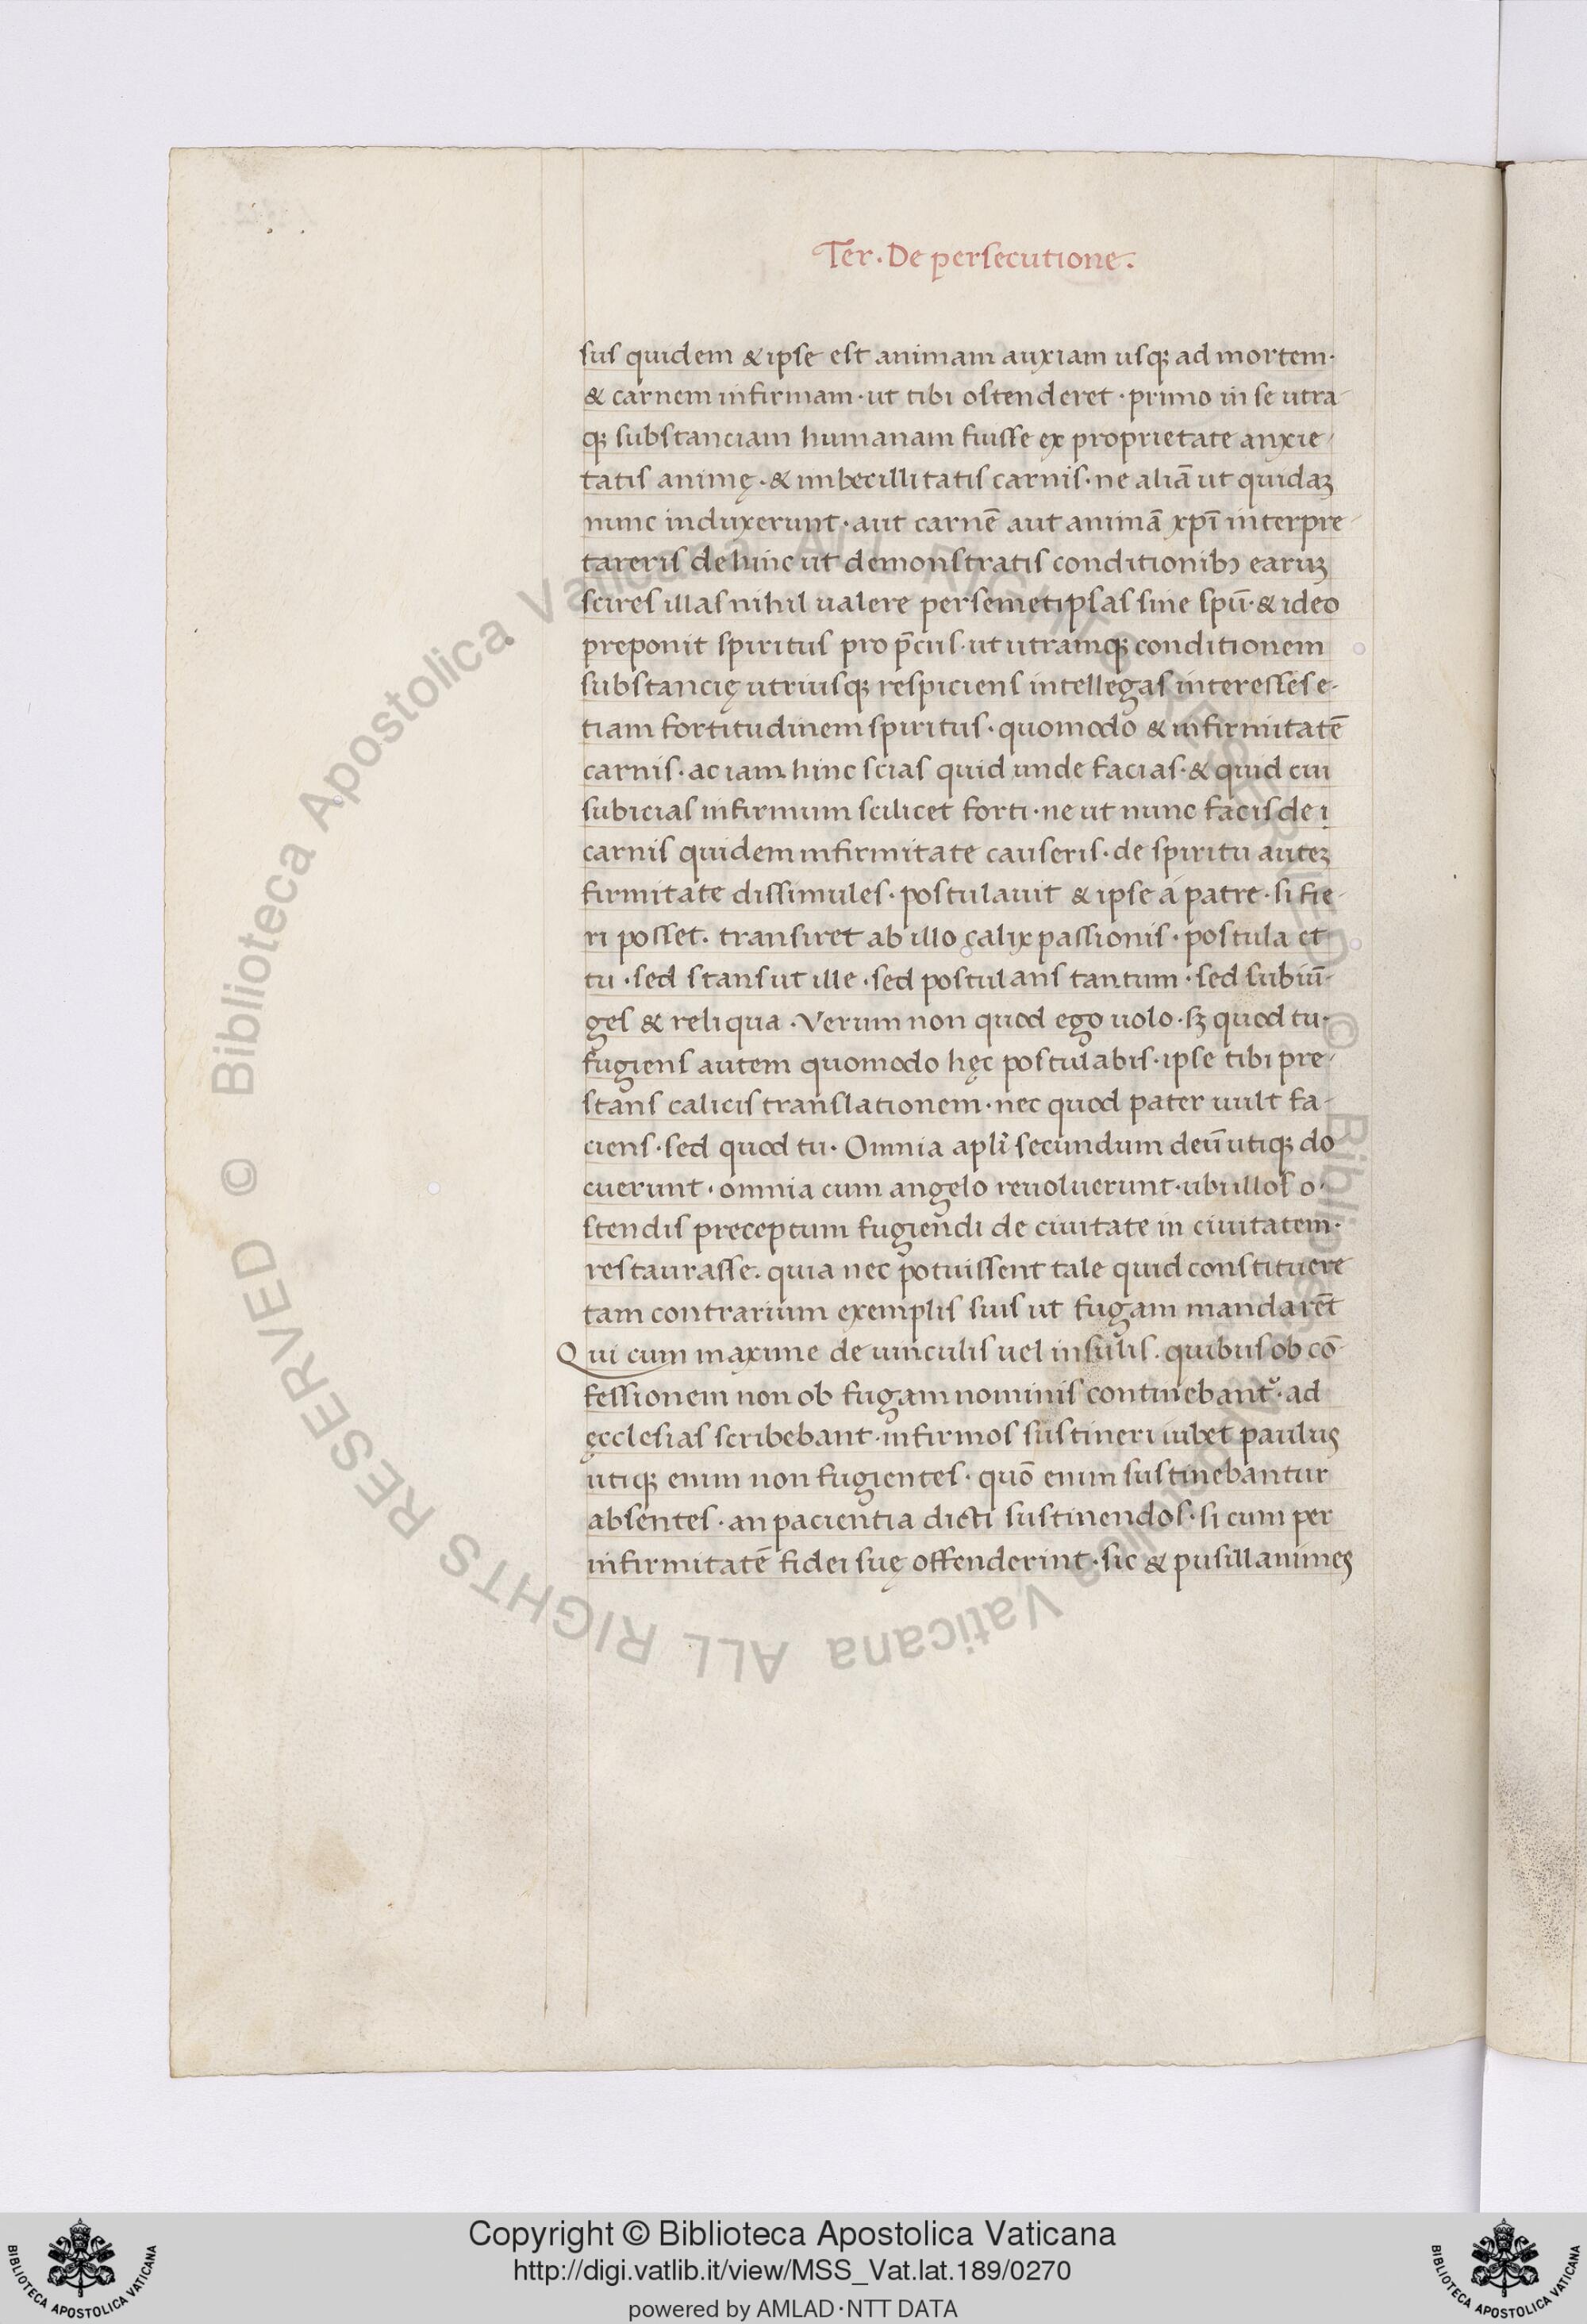 Ter. De persecutione.
sus quidem & ipse est animam auxiam usq; ad mortem·
& carnem infirmam· ut tibi ostenderet· primo in se utra-
q; substanciam humanam fuisse ex proprietate anxie-
tatis animę· & imbecillitatis carnis· ne aliā ut quidaʒ
nunc induxerunt· aut carnē aut animā xp̄i interpre-
tareris dehinc ut demonstratis conditionibꝰ earuʒ
scires illas nihil ualere per semetipsas sine spū· & ideo
preponit spiritus pro p̄cus· ut utramq; conditionem
substancię utriusq; respiciens intellegas interesses e-
tiam fortitudinem spiritus· quomodo & infirmitatē
carnis· ac iam hinc scias quid unde facias· & quid cui
subicias infirmum scilicet forti· ne ut nunc facis de i
carnis quidem infirmitate causeris· de spiritu auteʒ
firmitate dissimules· postulauit & ipse á patre· si fie-
ri posset· transiret ab illo calix passionis· postula et
tu· sed stans ut ille· sed postulans tantum· sed subiū-
ges & reliqua· Verum non quod ego uolo· sʒ quod tu·
fugiens autem quomodo hęc postulabis· ipse tibi pre-
stans calicis translationem· nec quod pater uult fa-
ciens· sed quod tu· Omnia apl̄i secundum deū utiq; do
cuerunt· omnia cum angelo reuoluerunt· ubi illos o-
stendis preceptum fugiendi de ciuitate in ciuitatem·
restaurasse· quia nec potuissent tale quid constituere
tam contrarium exemplis suis ut fugam mandarēt
Qui cum maxime de uinculis uel insulis· quibus ob cō-
fessionem non ob fugam nominis continebantᷣ· ad
ęcclesias scribebant· infirmos sustineri iubet paulus
utiq; enim non fugientes· quō enim sustinebantur
absentes· an pacientia dicti sustinendos· si cum per
infirmitatē fidei suę offenderint· sic & pusillanimes
© Biblioteca Apostolica Vaticana ALL RIGHTS RESERVED
© Biblioteca Apostolica Vaticana ALL RIGHTS RESERVED
Copyright © Biblioteca Apostolica Vaticana
http://digi.vatlib.it/view/MSS_Vat.lat.189/0270
powered by AMLAD·NTT DATA
BIBLIOTECA APOSTOLICA VATICANA
BIBLIOTECA APOSTOLICA VATICANA